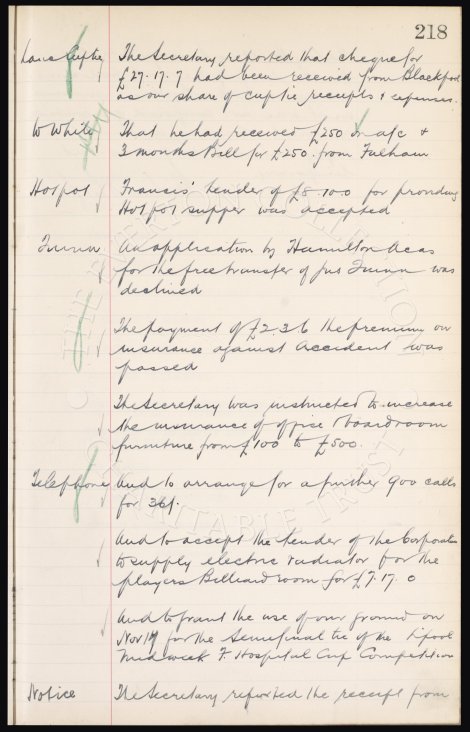 218
Lancs Cuptie The Secretary reported that cheque for
£27.17.7 had been received from Blackpool
as our share of cuptie receipts & expenses.
W White That he had received £250 on a/c &
3 months Bill for £250. from Fulham
Hotpot Francis' tender of £8.10.0 for providing
Hotpot supper was accepted
Quinn An application by Hamilton Acas
for the free transfer of Jas Quinn was
declined
The payment of £2.3.6 the premium on
insurance against accident was
passed
The Secretary was instructed to increase
the insurance of office & boardroom
furniture from £100 to £500.
Telephone And to arrange for a further 900 calls
for 36/-.
And to accept the tender of the Corporation
to supply electric radiator for the
players Billiard room for £7.17.0
And to grant the use of our ground on
Nov 19 for the Semifinal tie of the Lpool
Midweek F. Hospital Cup Competition
Notice The Secretary reported the receipt from
THE EVERTON COLLECTION
CHARITABLE TRUST